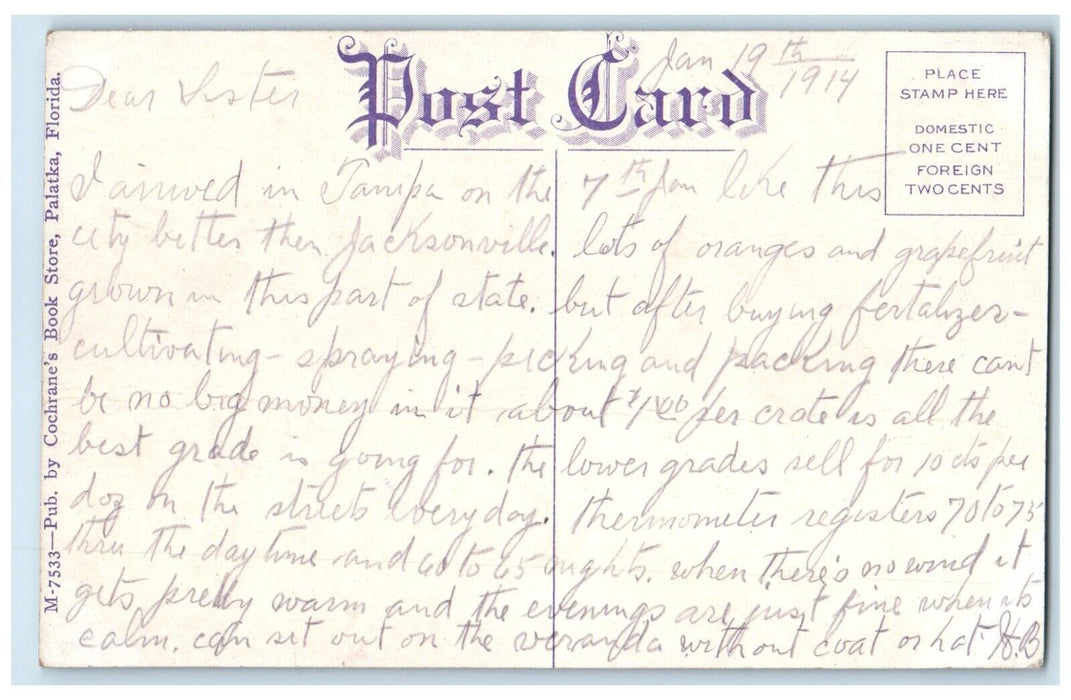 Post Card
Jan 19th 1914
PLACE
STAMP HERE
DOMESTIC
ONE CENT
FOREIGN
TWO CENTS
M-7533—Pub. by Cochrane's Book Store, Palatka, Florida.
Dear Sister
I arrived in Tampa on the 7th Jan like this
city better then Jacksonville. lots of oranges and grapefruit
grown in this part of state. but after buying fertalizer-
cultivating - spraying - picking and packing there cant
be no big money in it about $1.00 per crate is all the
best grade is going for. the lower grades sell for 10 cts per
doz on the streets everyday. thermometer registers 70 to 75
thru the daytime and 60 to 65 nights. when there's no wind it
gets pretty warm and the evenings are just fine when its
calm. can sit out on the veranda without coat or hat. H.B